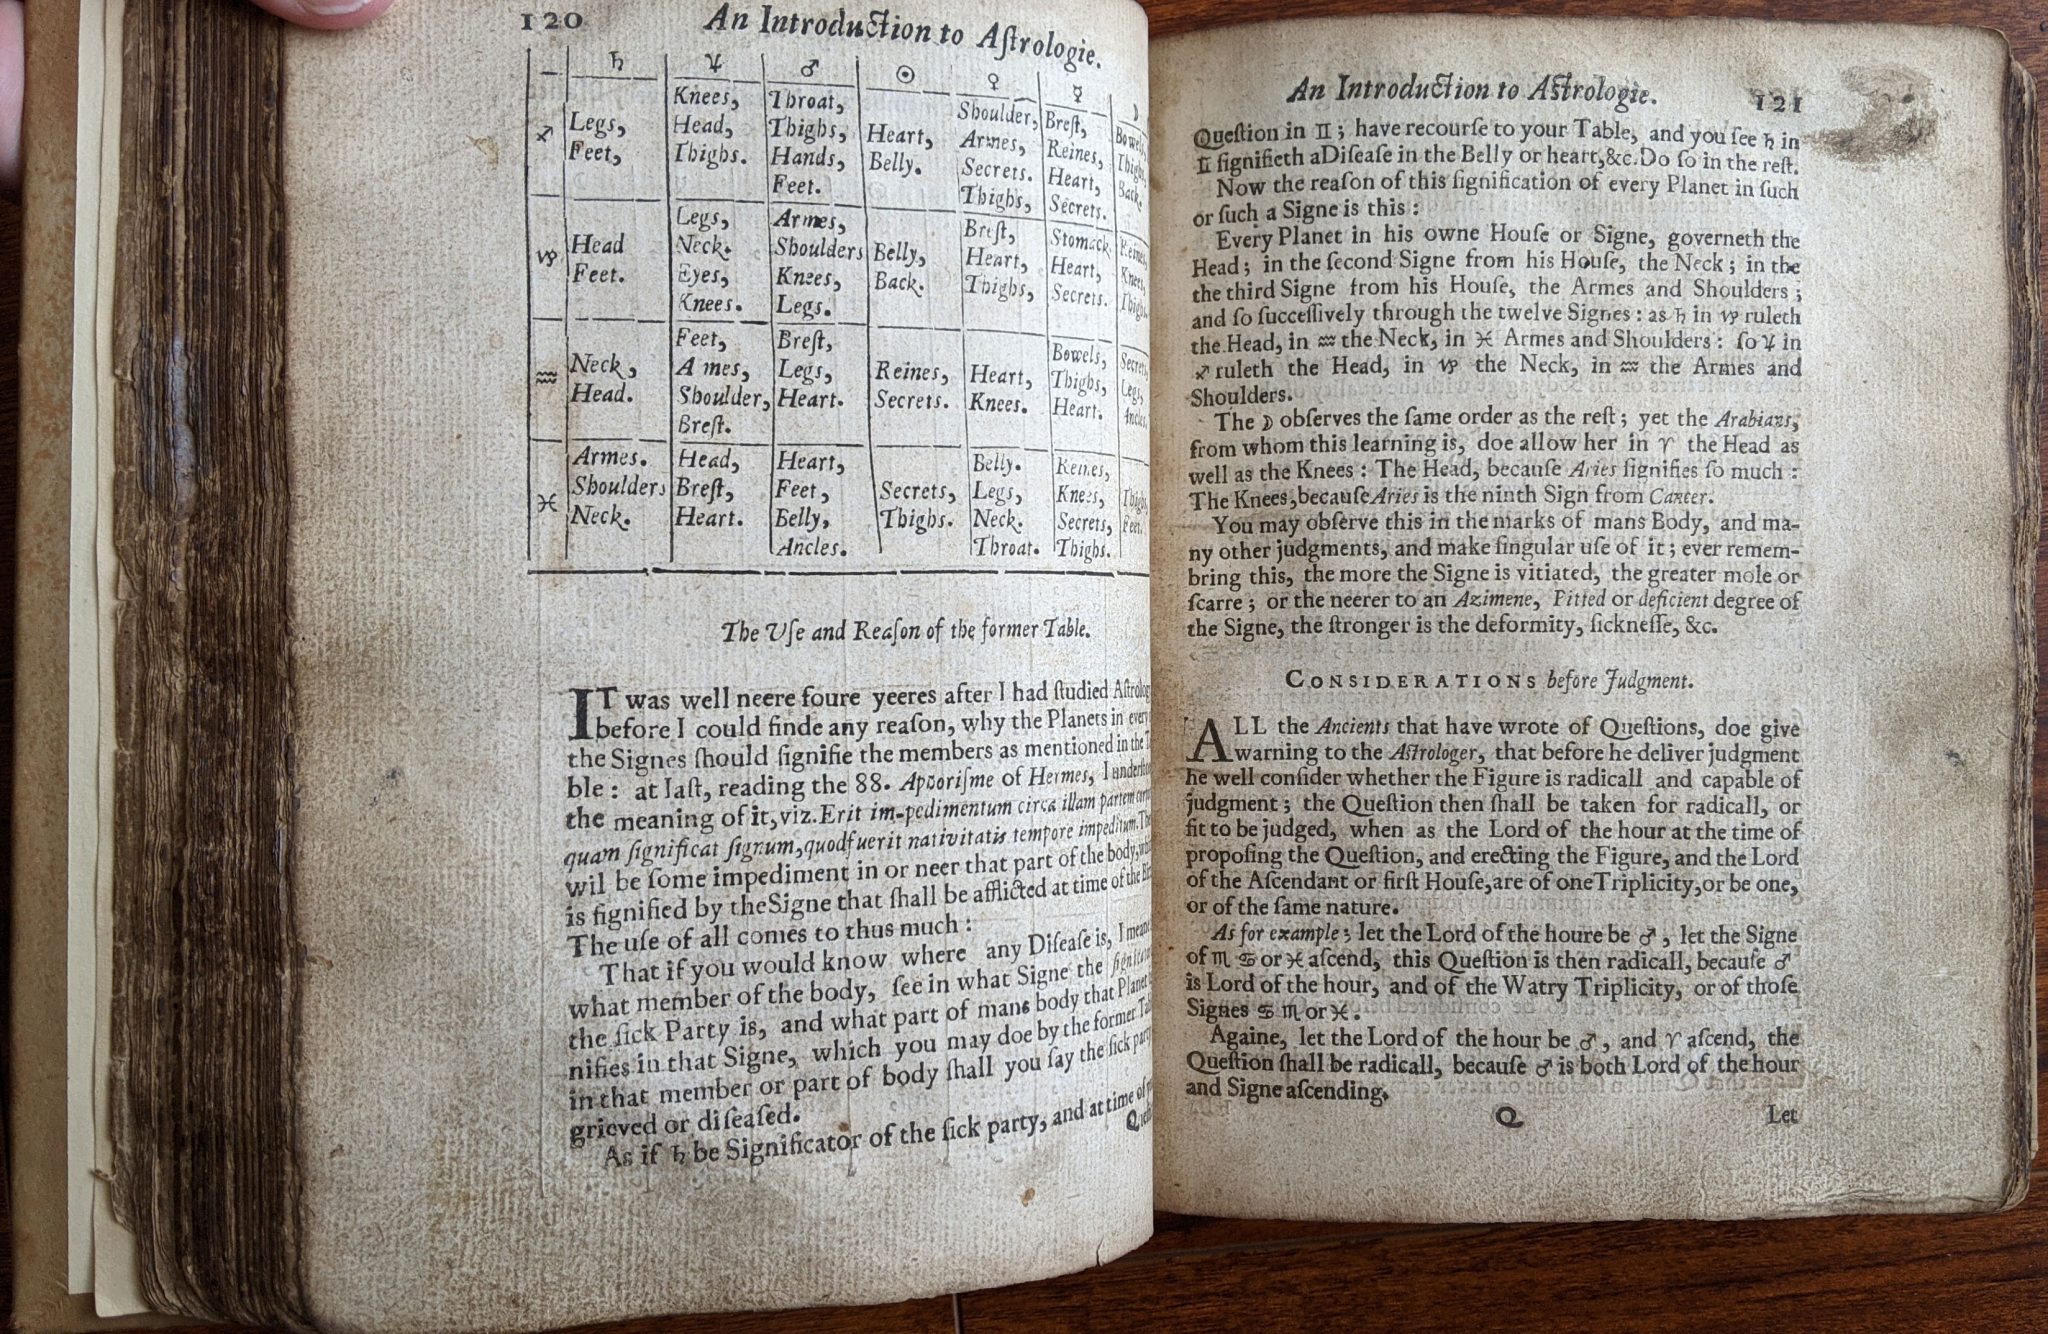 120 An Introduction to Aſtrologie.
♄ ♃ ♂ ☉ ♀ ☿ ☽
♐
Legs,
Feet,
Knees,
Head,
Thighs.
Throat,
Thighs,
Hands,
Feet.
Heart,
Belly.
Shoulder,
Armes,
Secrets.
Thighs,
Breſt,
Reines,
Heart,
Secrets.
Bowels,
Thighs
Back.
♑
Head
Feet.
Legs,
Neck.
Eyes,
Knees.
Armes,
Shoulders
Knees,
Legs.
Belly,
Back.
Breſt,
Heart,
Thighs,
Stomack
Heart,
Secrets.
Reines,
Knees,
Thighs.
♒
Neck,
Head.
Feet,
A mes,
Shoulder,
Breſt.
Breſt,
Legs,
Heart.
Reines,
Secrets.
Heart,
Knees.
Bowels,
Thighs,
Heart.
Secrets
Legs,
Ancles.
♓
Armes.
Shoulders
Neck.
Head,
Breſt,
Heart.
Heart,
Feet,
Belly,
Ancles.
Secrets,
Thighs.
Belly.
Legs,
Neck.
Throat.
Reines,
Knees,
Secrets,
Thighs.
Thighs,
Feet.
The Uſe and Reaſon of the former Table.
IT was well neere foure yeeres after I had ſtudied Aſtrolog
before I could finde any reaſon, why the Planets in every
the Signes ſhould ſignifie the members as mentioned in the T
ble: at laſt, reading the 88. Aphoriſme of Hermes, I underſtoo
the meaning of it, viz. Erit im-pedimentum circa illam partem corp
quam ſignificat ſignum, quod fuerit nativitatis tempore impeditum. The
wil be ſome impediment in or neer that part of the body, w
is ſignified by the Signe that ſhall be afflicted at time of the
The uſe of all comes to thus much:
That if you would know where any Diſeaſe is, I meane
what member of the body, ſee in what Signe the ſignificat
the ſick Party is, and what part of mans body that Planet
nifies in that Signe, which you may doe by the former Tab
in that member or part of body ſhall you ſay the ſick party
grieved or diſeaſed.
As if ♄ be Significator of the ſick party, and at time of
Queſt
An Introduction to Aſtrologie. 121
Queſtion in ♊; have recourſe to your Table, and you ſee ♄ in
♊ ſignifieth a Diſeaſe in the Belly or heart, &c. Do ſo in the reſt.
Now the reaſon of this ſignification of every Planet in ſuch
or ſuch a Signe is this:
Every Planet in his owne Houſe or Signe, governeth the
Head; in the ſecond Signe from his Houſe, the Neck; in the
the third Signe from his Houſe, the Armes and Shoulders;
and ſo ſucceſſively through the twelve Signes: as ♄ in ♑ ruleth
the Head, in ♒ the Neck, in ♓ Armes and Shoulders: ſo ♃ in
♐ ruleth the Head, in ♑ the Neck, in ♒ the Armes and
Shoulders.
The ☽ obſerves the ſame order as the reſt; yet the Arabians,
from whom this learning is, doe allow her in ♈ the Head as
well as the Knees: The Head, becauſe Aries ſignifies ſo much:
The Knees, becauſe Aries is the ninth Sign from Cancer.
You may obſerve this in the marks of mans Body, and ma-
ny other judgments, and make ſingular uſe of it; ever remem-
bring this, the more the Signe is vitiated, the greater mole or
ſcarre; or the neerer to an Azimene, Pitted or deficient degree of
the Signe, the ſtronger is the deformity, ſickneſſe, &c.
CONSIDERATIONS before Judgment.
ALL the Ancients that have wrote of Queſtions, doe give
warning to the Aſtrologer, that before he deliver judgment
he well conſider whether the Figure is radicall and capable of
judgment; the Queſtion then ſhall be taken for radicall, or
fit to be judged, when as the Lord of the hour at the time of
propoſing the Queſtion, and erecting the Figure, and the Lord
of the Aſcendant or firſt Houſe, are of one Triplicity, or be one,
or of the ſame nature.
As for example; let the Lord of the houre be ♂, let the Signe
of ♏ ♋ or ♓ aſcend, this Queſtion is then radicall, becauſe ♂
is Lord of the hour, and of the Watry Triplicity, or of thoſe
Signes ♋ ♏ or ♓.
Againe, let the Lord of the hour be ♂, and ♈ aſcend, the
Queſtion ſhall be radicall, becauſe ♂ is both Lord of the hour
and Signe aſcending.
Q Let